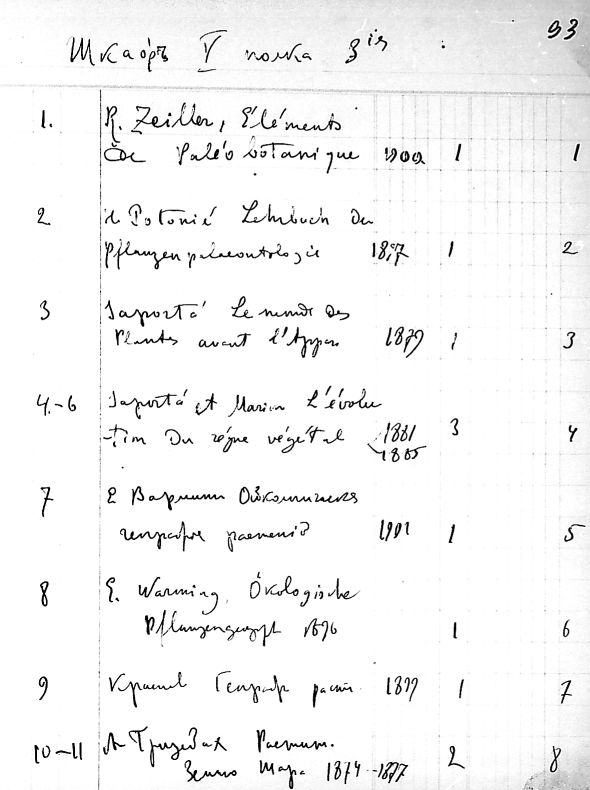 93
Шкафъ V полка 3ія
1. R. Zeiller, Éléments
de Paléobotanique 1900 1 1
2 H Potonié Lehrbuch der
Pflanzenpalaeontologie 1 2
3 Saporta Le monde des
Plantes avant l'Appar 1879 1 3
4.-6 Saporta et Marion L'évolu
tion du règne végétal 1881 3 4
1885
7 Е Варминг Ойкологическая
географія растеній 1901 1 5
8 E. Warming, Ökologische
Pflanzengeogrph 1896 1 6
9 Краснов Географ раст. 1899 1 7
10-11 А Гризебах Растит.
Земного Шара 1874-1877 2 8